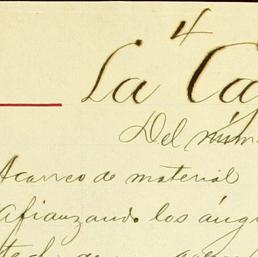 4
La Ca
Del núm
Acarreo de material
Afianzando los áng